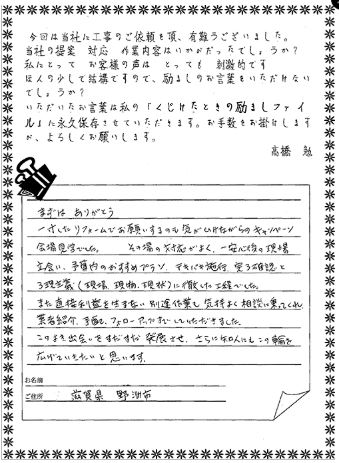 今回は当社に工事のご依頼を頂、有難うございました。
当社の提案 対応 作業内容はいかがだったでしょうか?
私にとって お客様の声は とっても 刺激的です
ほんの少しで結構ですので、励ましのお言葉をいただけない
でしょうか?
いただいたお言葉は私の「くじけたときの励ましファイ
ル」に永久保存させていただきます。お手数をお掛けします
が、よろしくお願いします。
高橋 勉
まずは ありがとう
一寸したリフォームでお願いするのも気がひけながらのキャンペーン
会場見学でした。 その場の対応がよく、一安心 後の現場
立会い、予算内のおすすめプラン、テキパキ施行 完了確認と
3現主義(現場、現物、現状)に徹した工程でした。
また直接利益を生まない別途作業も気持よく相談に乗ってくれ
業者紹介、手配、フォローアップまでしていただきました。
このよき出会いをまだまだ発展させ、さらに知人にもこの輪を
広げていきたいと思います。
お名前
ご住所 滋賀県 野洲市